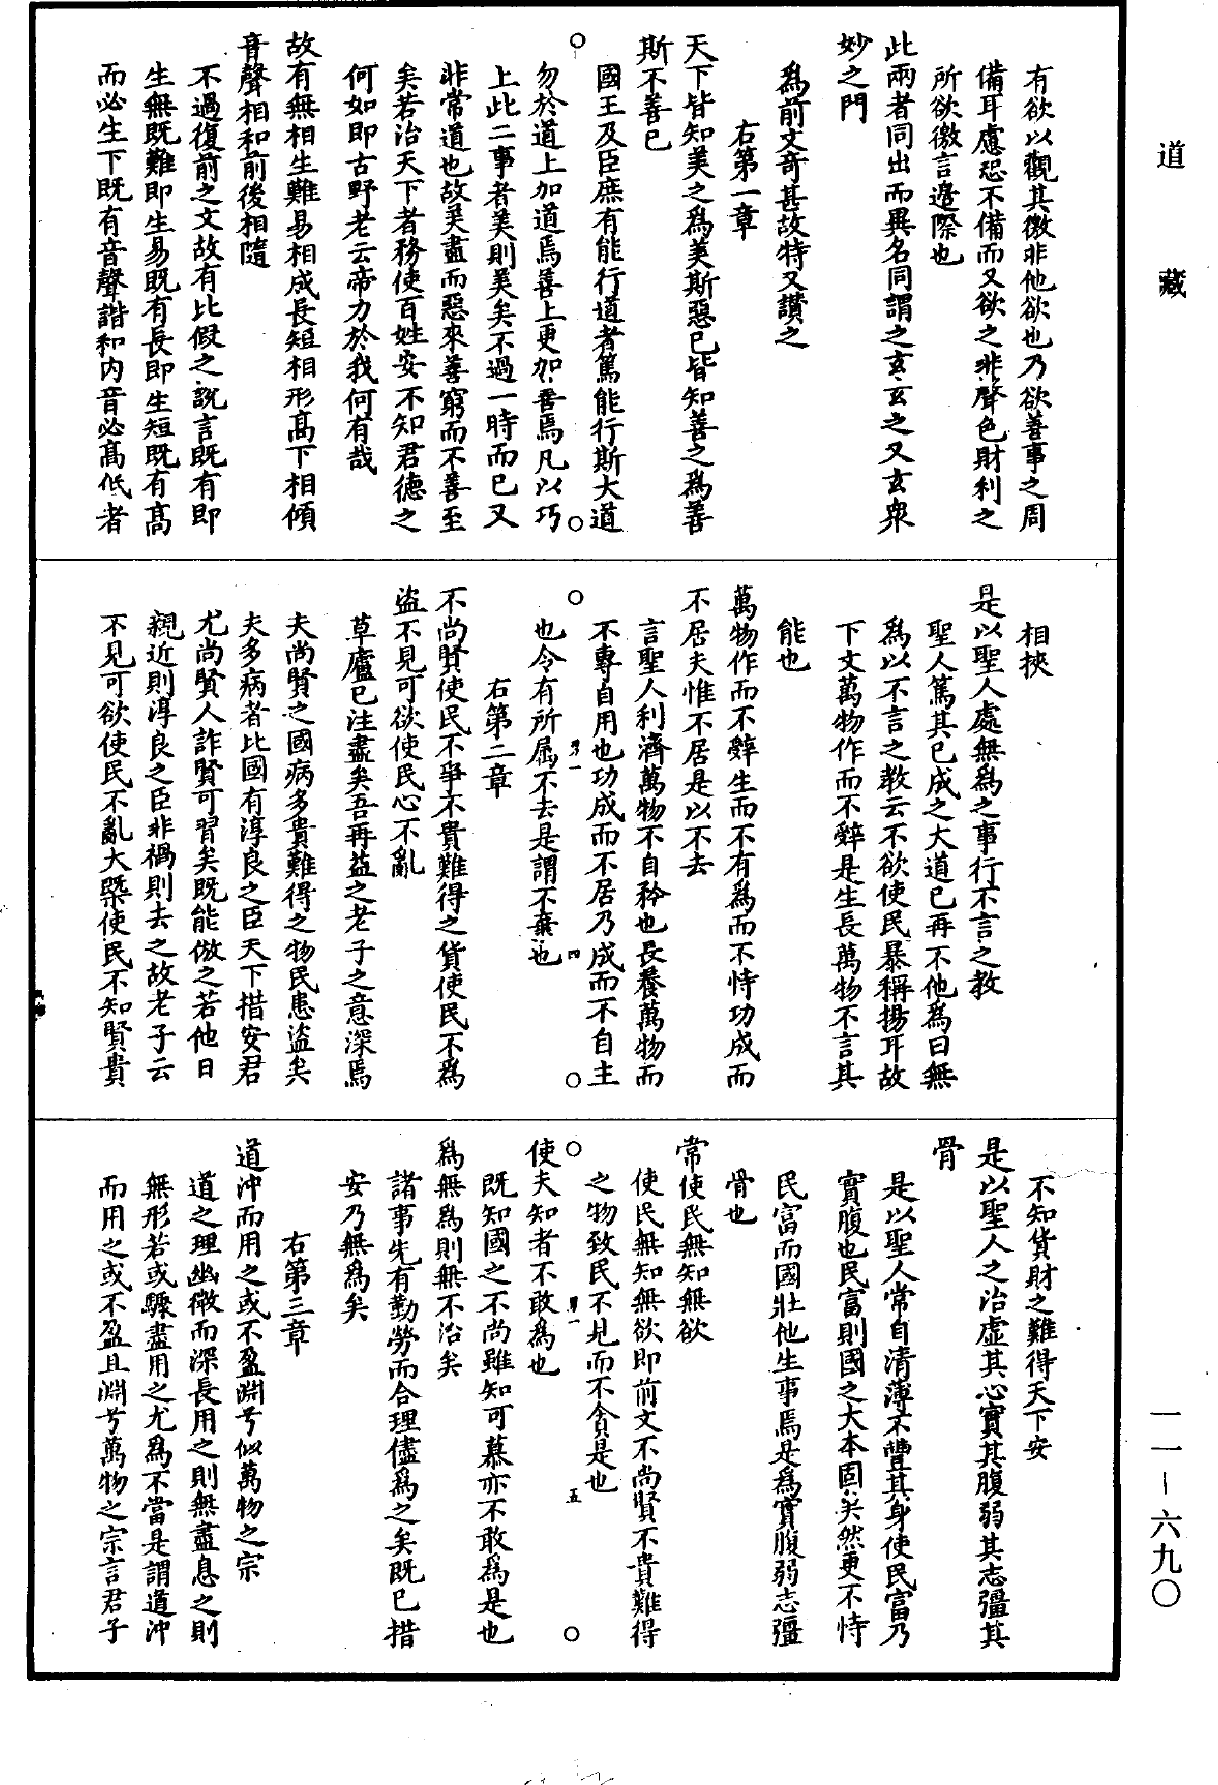 道藏
一一－六九〇
有欲以觀其徼非他欲也乃欲善事之周
備耳慮恐不備而又欲之非聲色財利之
所欲徼言邊際也
此兩者同出而異名同謂之玄玄之又玄衆
妙之門
為前文奇甚故特又讚之
右第一章
天下皆知美之為美斯惡已皆知善之為善
斯不善已
國王及臣庶有能行道者篤能行斯大道
勿於道上加道焉善上更加善焉凡以巧
上此二事者美則美矣不過一時而已又
非常道也故美盡而惡來善窮而不善至
矣若治天下者務使百姓安不知君德之
何如即古野老云帝力於我何有哉
故有無相生難易相成長短相形高下相傾
音聲相和前後相隨
不過復前之文故有比假之說言既有即
生無既難即生易既有長即生短既有高
而必生下既有音聲諧和內音必高低者
相挾
是以聖人處無為之事行不言之教
聖人篤其已成之大道已再不他為曰無
為以不言之教云不欲使民暴稱揚耳故
下文萬物作而不辭是生長萬物不言其
能也
萬物作而不辭生而不有為而不恃功成而
不居夫惟不居是以不去
言聖人利濟萬物不自矜也長養萬物而
不專自用也功成而不居乃成而不自主
也令有所屬不去是謂不棄也
右第二章
不尚賢使民不爭不貴難得之貨使民不為
盜不見可欲使民心不亂
草廬已注盡矣吾再益之老子之意深焉
夫尚賢之國病多貴難得之物民患盜矣
夫多病者比國有淳良之臣天下措安君
尤尚賢人詐賢可習矣既能倣之若他日
親近則淳良之臣非禍則去之故老子云
不見可欲使民不亂大槩使民不知賢貴
不知貨財之難得天下安
是以聖人之治虛其心實其腹弱其志彊其
骨
是以聖人常自清薄不豐其身使民富乃
實腹也民富則國之大本固矣然更不恃
民富而國壯他生事焉是為實腹弱志彊
骨也
常使民無知無欲
使民無知無欲即前文不尚賢不貴難得
之物致民不見而不貪是也
五
使夫知者不敢為也
既知國之不尚雖知可慕亦不敢為是也
為無為則無不治矣
諸事先有勤勞而合理儘為之矣既已措
安乃無為矣
右第三章
道沖而用之或不盈淵兮似萬物之宗
道之理幽微而深長用之則無盡息之則
無形若或驟盡用之尤為不當是謂道沖
而用之或不盈且淵兮萬物之宗言君子